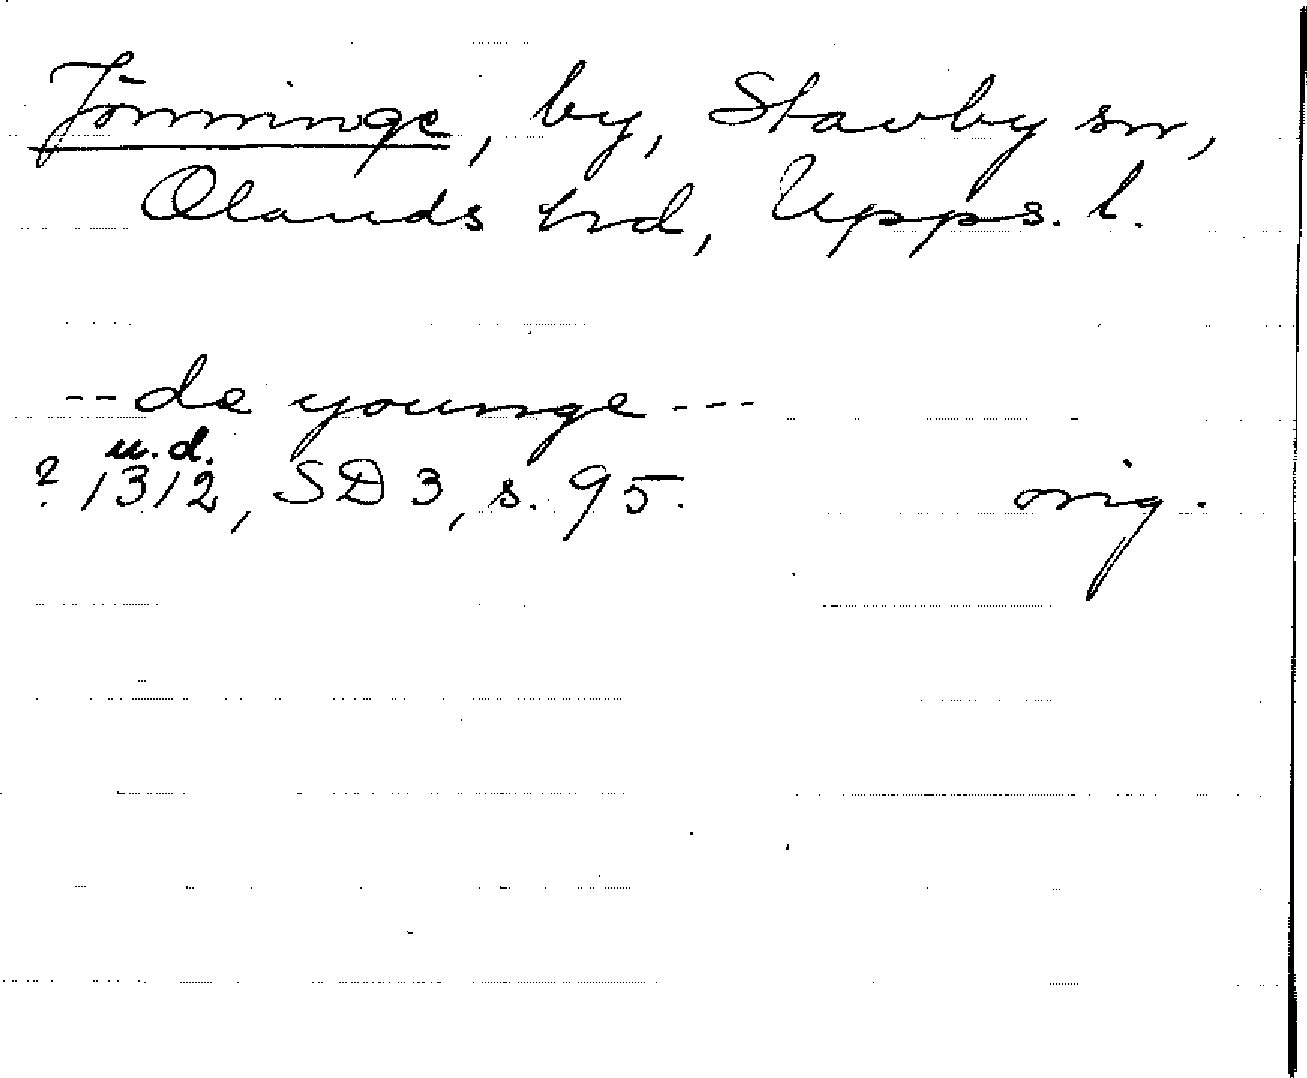 Jönninge, by, Stavby sn,
Olands hd, Upps. l.
-- de younge ---
u.d.
? 1312, SD 3, s. 95. orig.